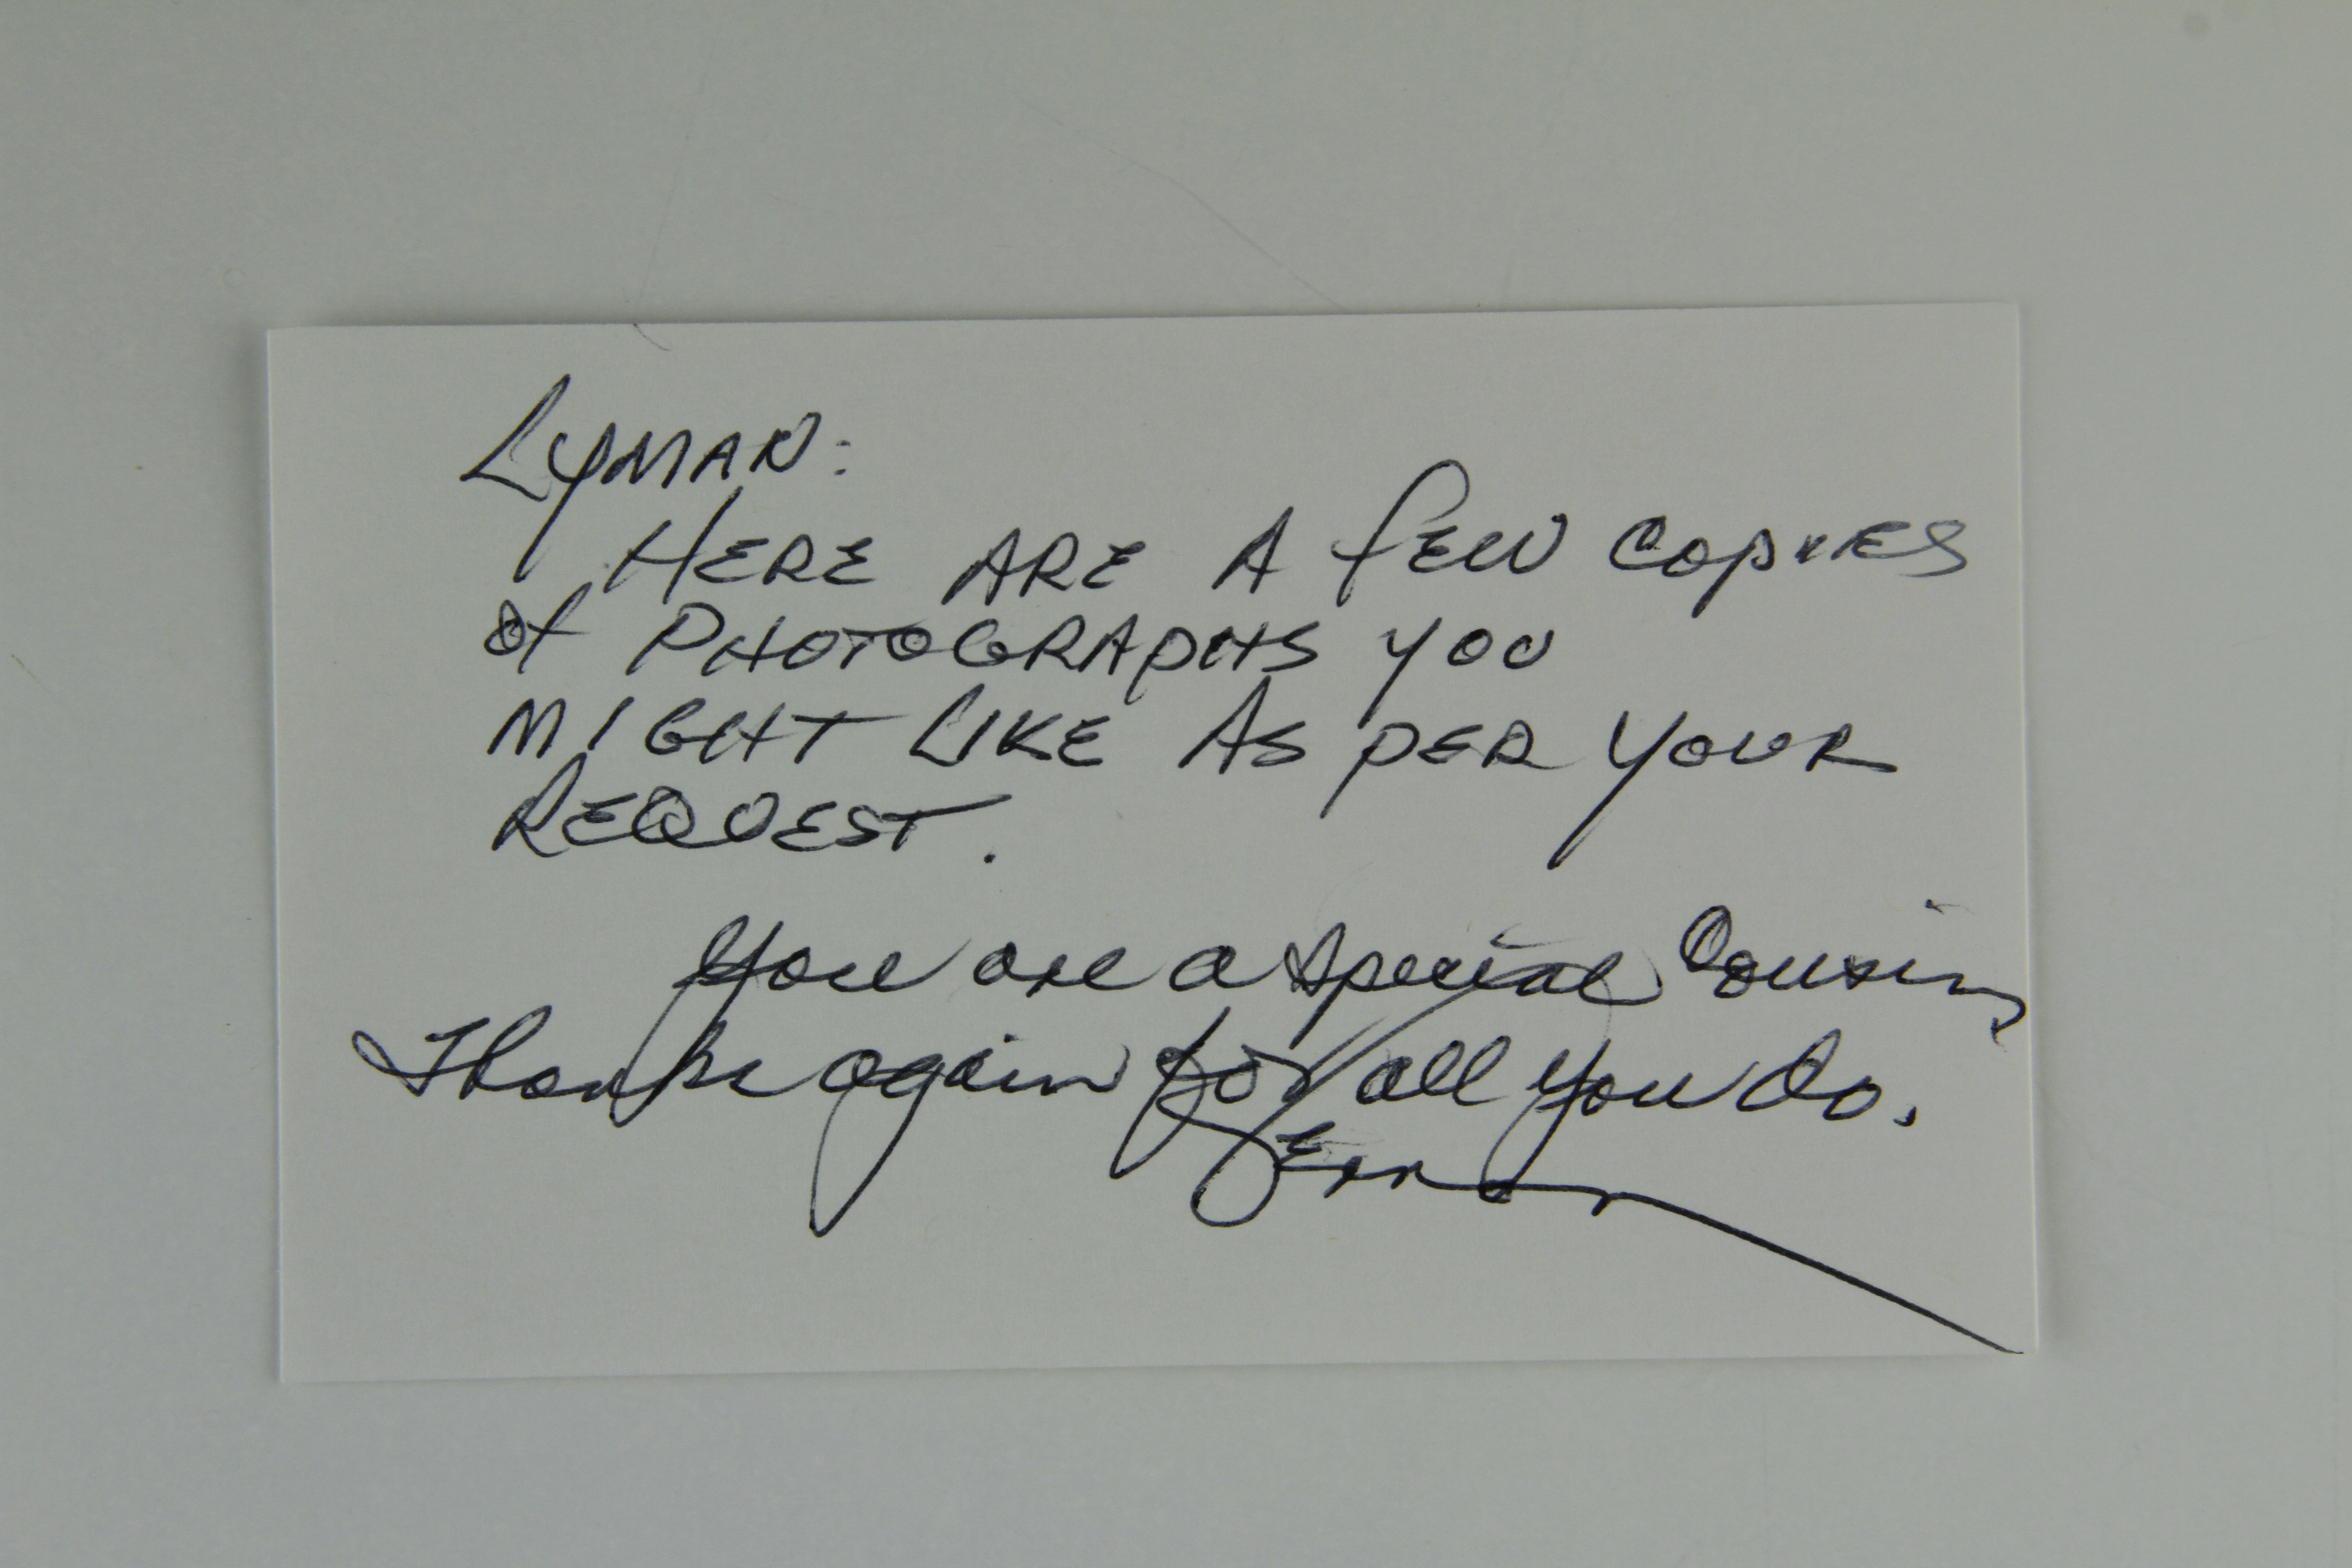 LYMAN:
HERE ARE A fEW COPIES
of PHOTOGRAPHS YOU
MIGHT LIKE AS PER YOUR
REQUEST.
You are a special Cousin,
Thanks again for all you do.